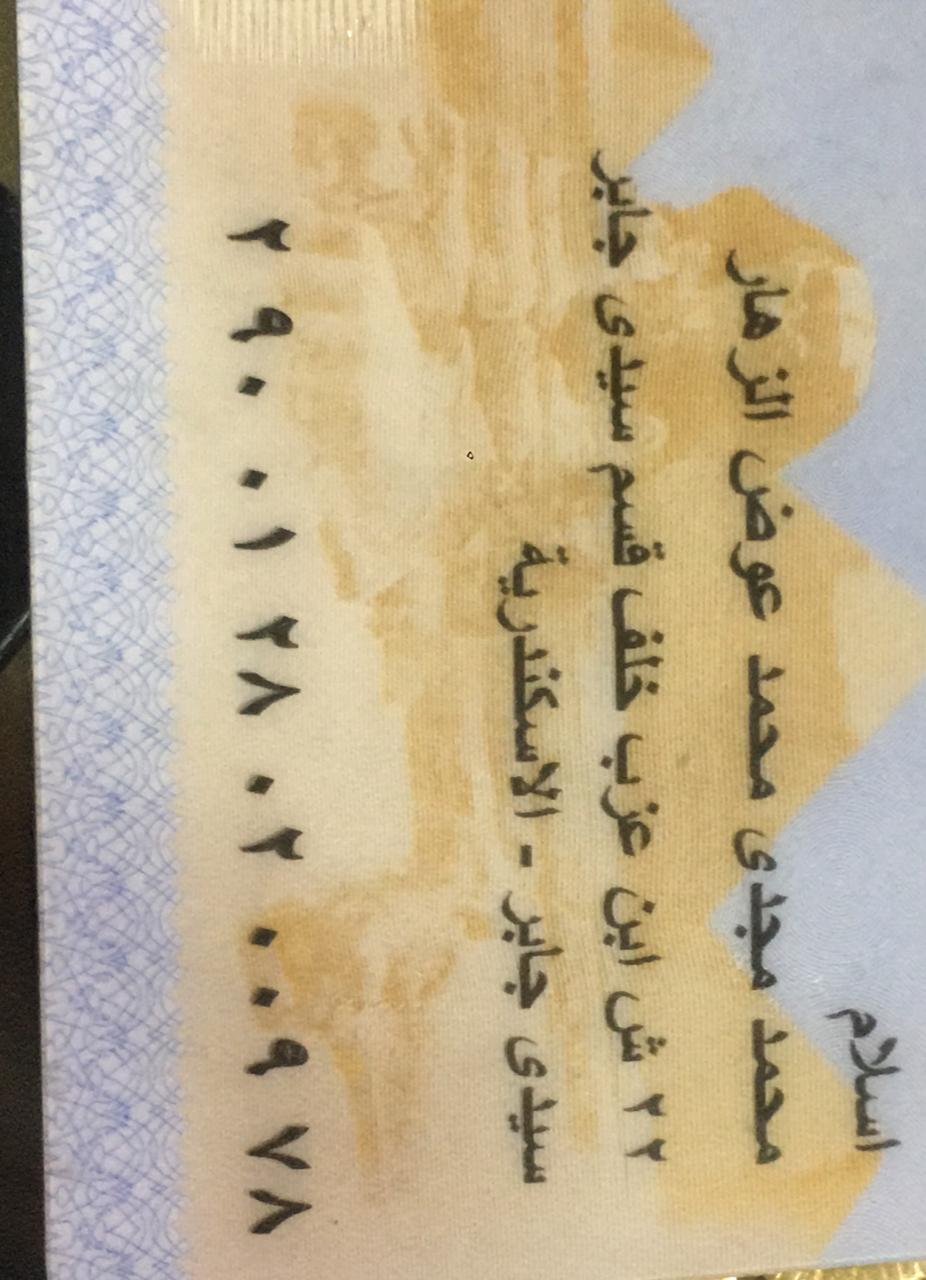 اسلام
محمد مجدى محمد عوض الزهار
٢٢ ش ابن عزب خلف قسم سيدى جابر
سيدى جابر - الاسكندرية
٢٩٠٠١٢٨٠٢٠٠٩٧٨